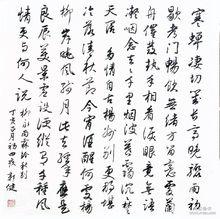 寒蝉凄切对长亭晚骤雨初
歇都门畅饮无绪方留恋处兰
舟催发执手相看泪眼竟无语
凝噎念去去千里烟波暮霭沉沉楚
天阔多情自古伤离别更那堪
冷落清秋节今宵酒醒何处杨
柳岸晓风残月此去经年应是
良辰美景虚设便纵有千种风
情更与何人说
柳永雨霖铃
丁亥